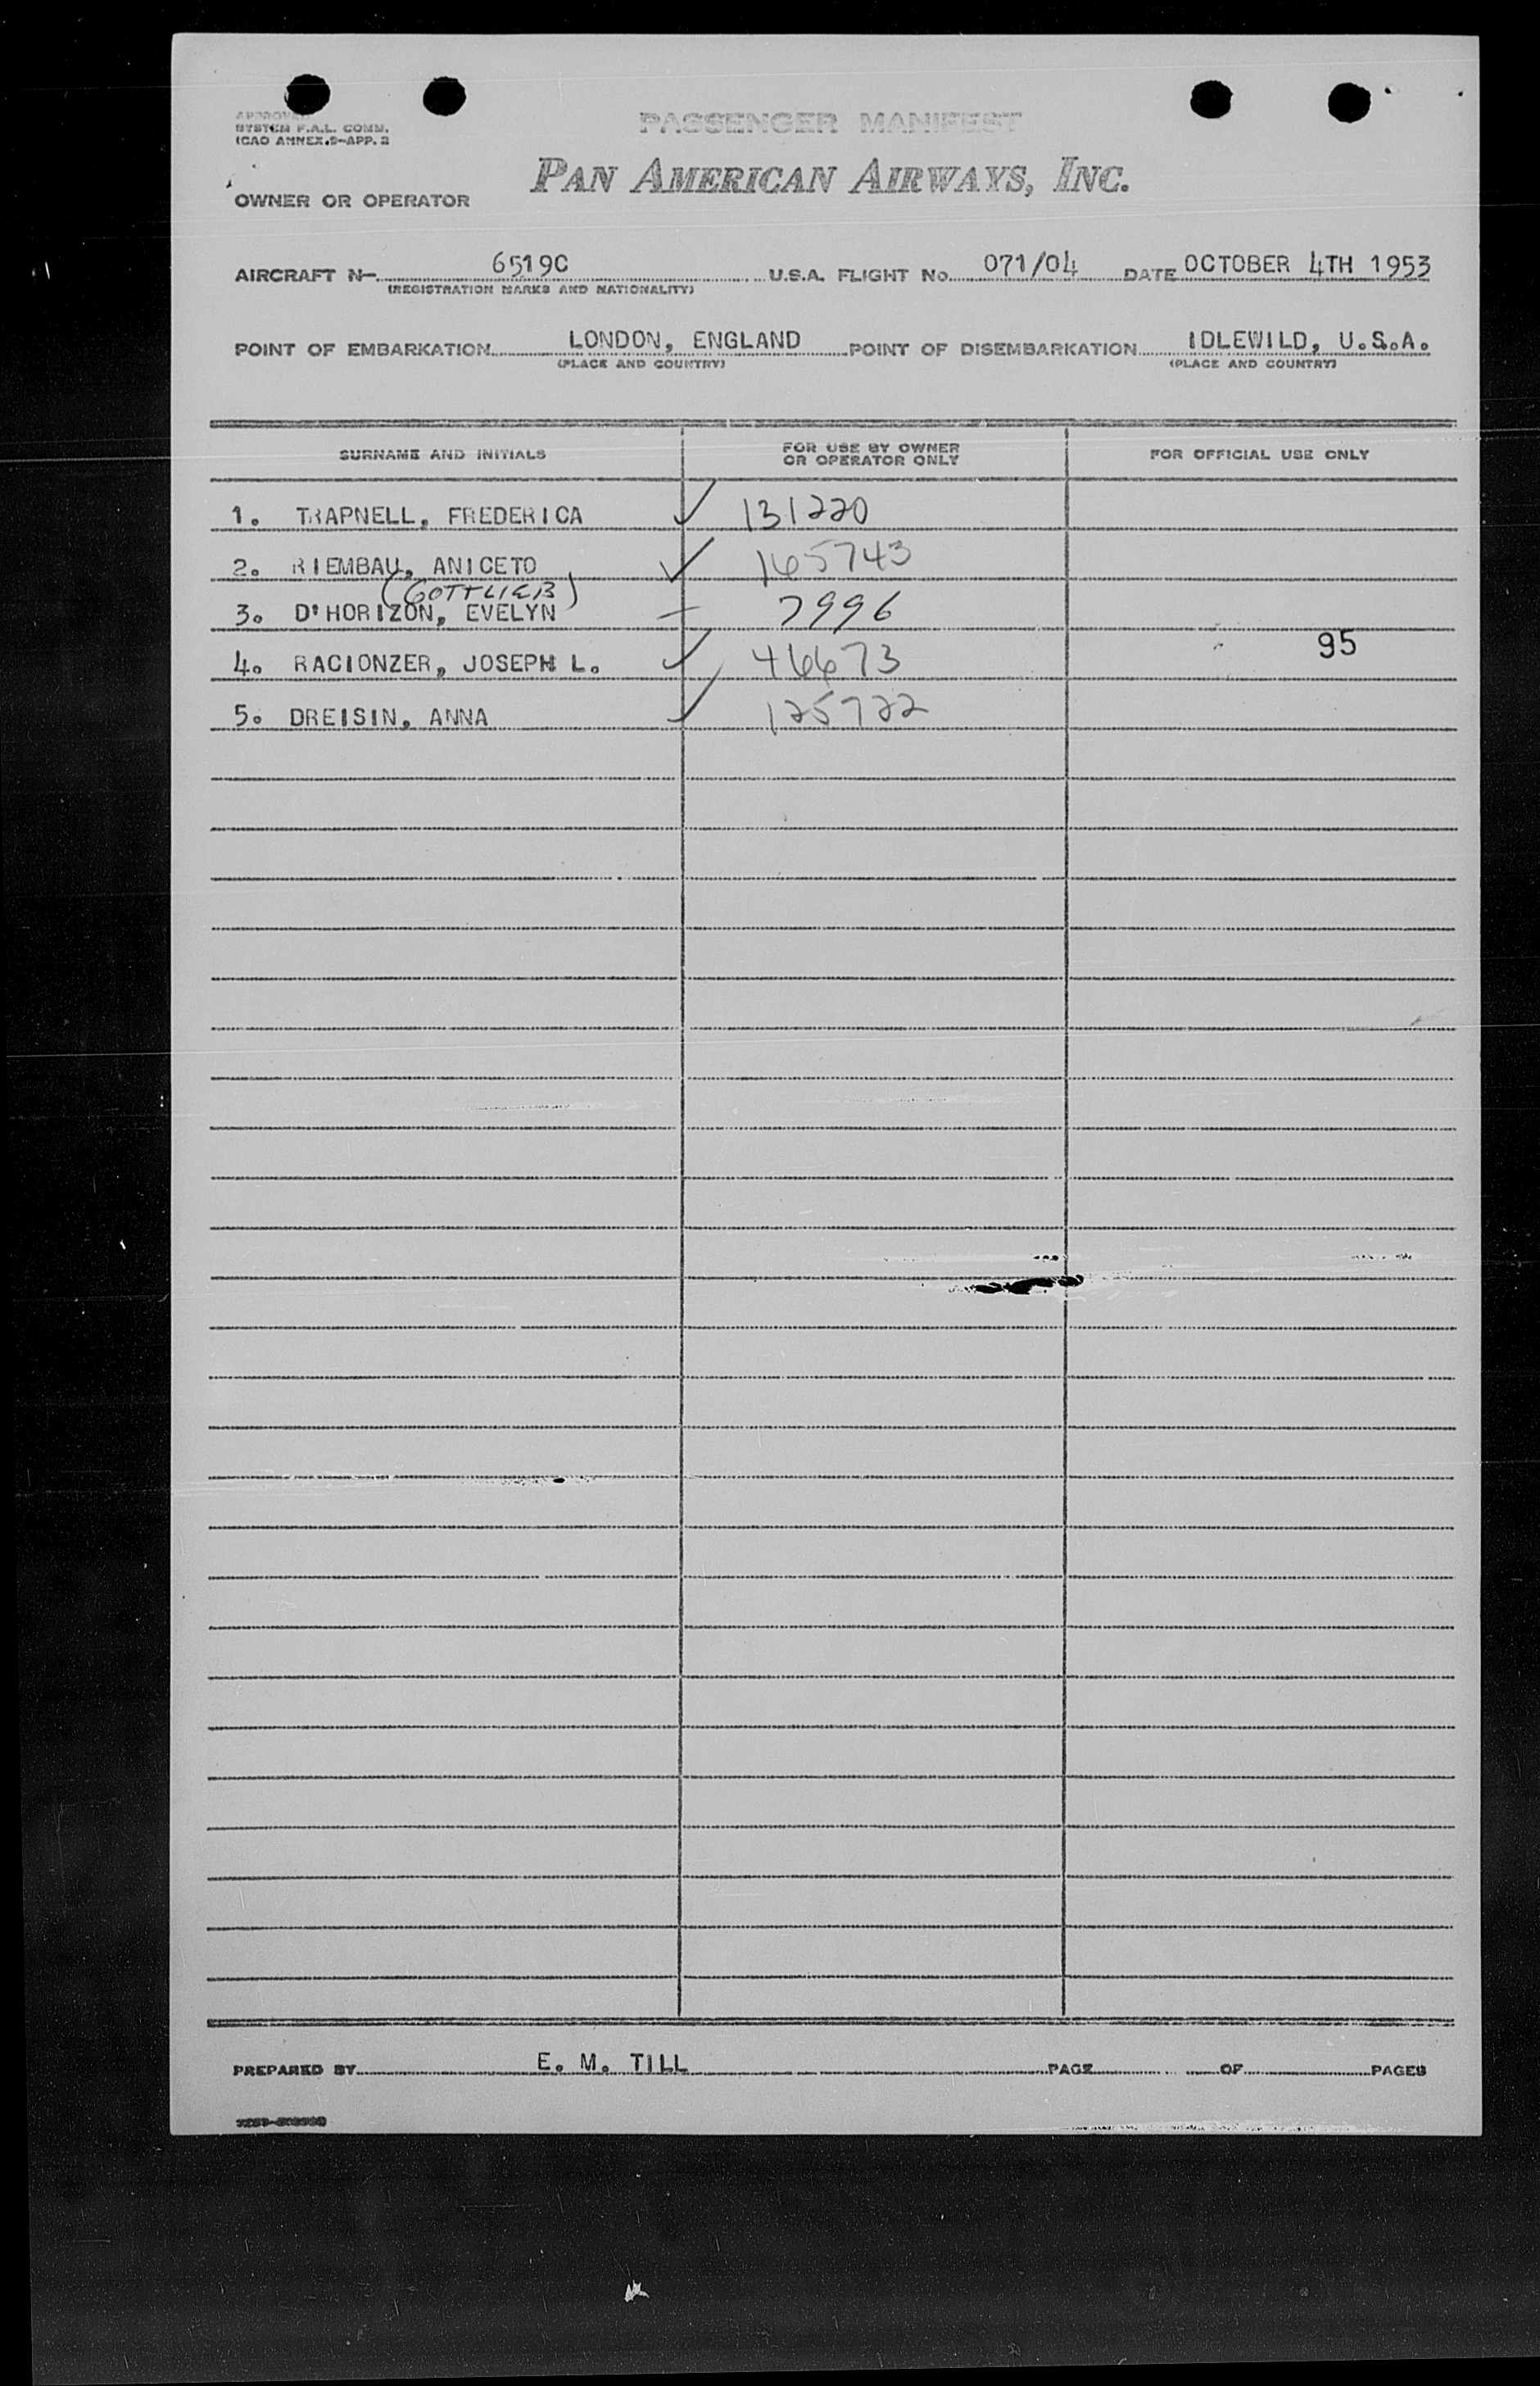 APPROVED
SYSTEM F.A.L. COMM.
ICAO ANNEX.9-APP. 2
PASSENGER MANIFEST
PAN AMERICAN AIRWAYS, INC.
OWNER OR OPERATOR
AIRCRAFT N- 6519C U.S.A. FLIGHT No. 071/04 DATE OCTOBER 4TH 1953
(REGISTRATION MARKS AND NATIONALITY)
POINT OF EMBARKATION LONDON, ENGLAND POINT OF DISEMBARKATION IDLEWILD, U.S.A.
(PLACE AND COUNTRY) (PLACE AND COUNTRY)
SURNAME AND INITIALS FOR USE BY OWNER OR OPERATOR ONLY FOR OFFICIAL USE ONLY
1. TRAPNELL, FREDERICA ✓ 131220
2. RIEMBAU, ANICETO ✓ 165743
(GOTTLIEB)
3. D'HORIZON, EVELYN — 7996
4. RACIONZER, JOSEPH L. ✓ 46673 95
5. DREISIN, ANNA ✓ 125722
PREPARED BY E. M. TILL PAGE OF PAGES